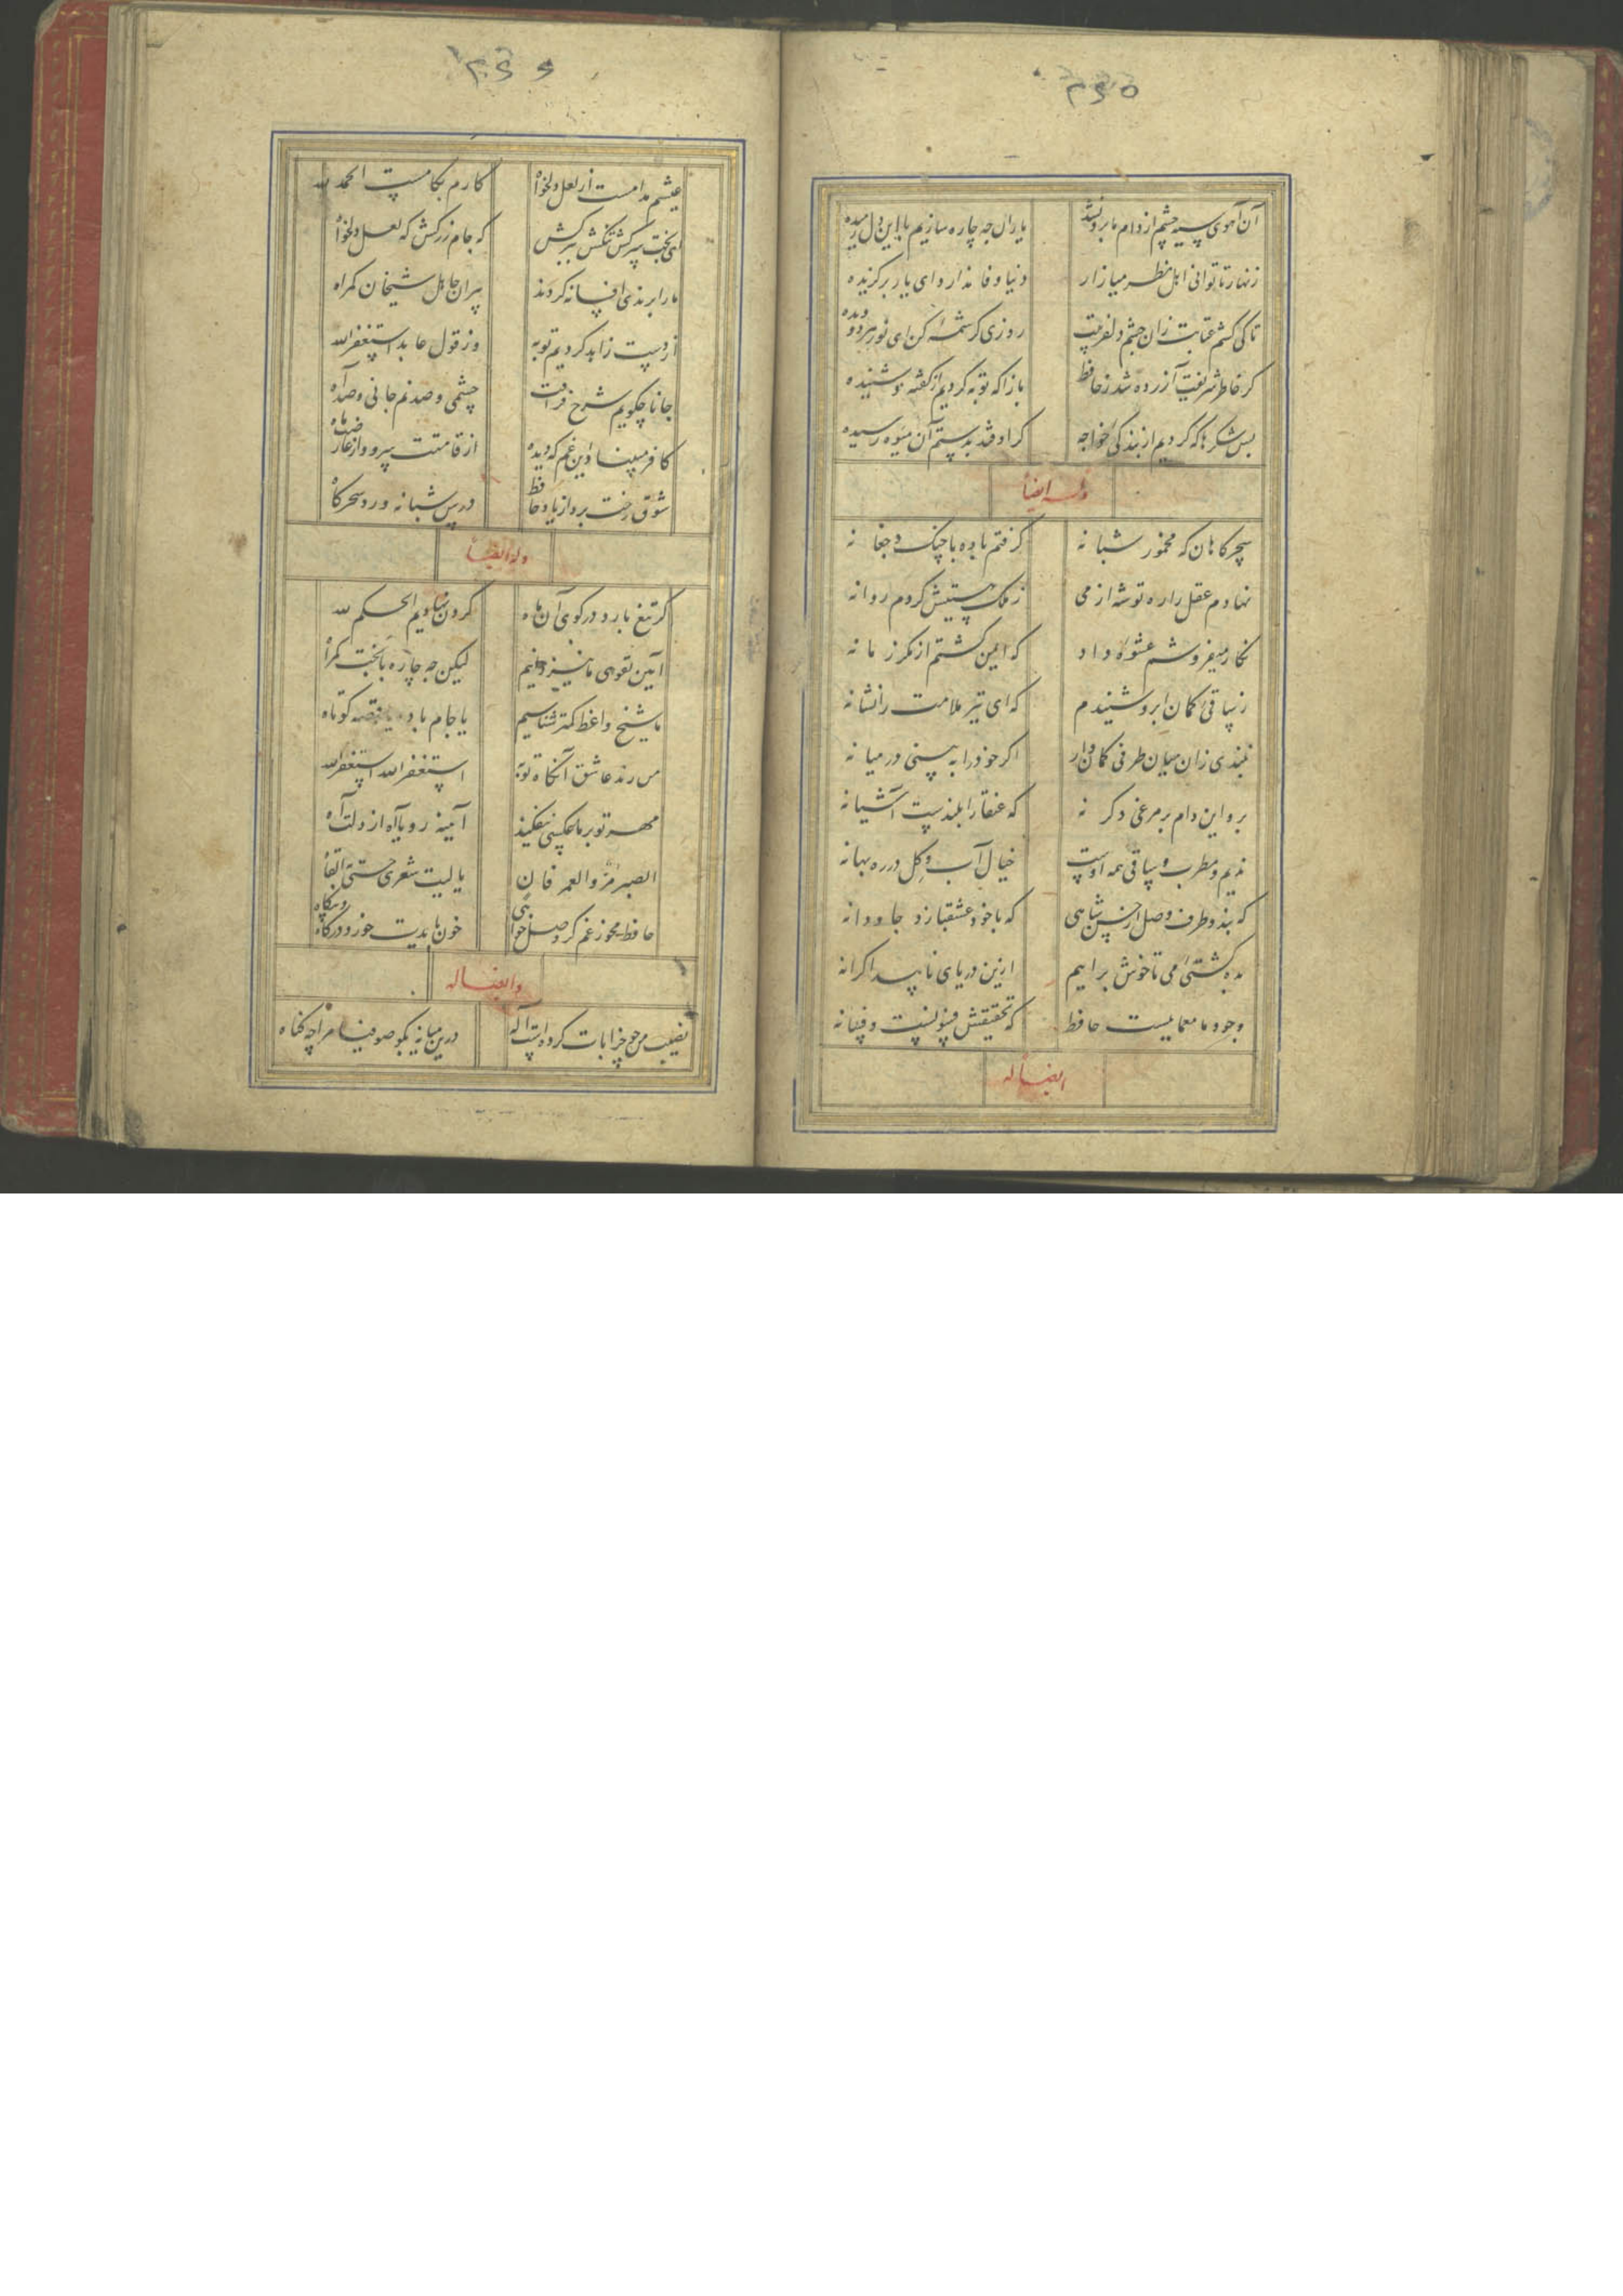 ۲۶۵
آن آهوی سیه چشم از دام ما برون شد یاران چه چاره سازیم با این دل رمیده
زنهار تا توانی اهل نظر میازار دنیا وفا ندارد ای یار برگزیده
تا کی کشم عتابت زان چشم دلفریبت روزی کرشمهٔ کن ای نور هر دو دیده
گر خاطر شریفت آزرده شد ز حافظ بازآ که توبه کردیم از گفته و شنیده
بس شکرها که کردیم از بندگی خواجه گر اوفتد بدستم آن میوه رسیده
وله ایضاً
سحرگاهان که مخمور شبانه گرفتم باده با چنگ و چغانه
نهادم عقل را ره توشه از می ز ملک هستیش کردم روانه
نگار میفروشم عشوهٔ داد که ایمن گشتم از مکر زمانه
ز ساقی کمان ابرو شنیدم که ای تیر ملامت را نشانه
نبندی زان میان طرفی کمروار اگر خود را به بینی در میانه
برو این دام بر مرغی دگر نه که عنقا را بلندست آشیانه
ندیم و مطرب و ساقی همه اوست خیال آب و گل در ره بهانه
که بندد طرف وصل از حسن شاهی که با خود عشقبازد جاودانه
بده کشتی می تا خوش برایم ازین دریای ناپیدا کرانه
وجود ما معماییست حافظ که تحقیقش فسونست و فسانه
ایضاً له
۲۶۶
عیشم مدامست از لعل دلخواه کارم بکامست الحمد لله
ای بخت سرکش تنگش ببر کش که جام زر کش که لعل دلخواه
ما را برندی افسانه کردند پیران جاهل شیخان گمراه
از دست زاهد کردیم توبه وز قول عابد استغفرالله
جانا چگویم شرح فراقت چشمی و صد نم جانی و صد آه
کافر مبیناد این غم که دیده از قامتت سرو و از عارضت ماه
شوق رخت برد از یاد حافظ درس شبانه ورد سحرگاه
وله ایضاً
گر تیغ بارد در کوی آن ماه گردن نهادیم الحکم لله
آیین تقوی ما نیز دانیم لیکن چه چاره با بخت گمراه
ما شیخ و واعظ کمتر شناسیم یا جام باده یا قصه کوتاه
من رند عاشق آنگاه توبه استغفرالله استغفرالله
مهر تو بر ما عکسی نیفکند آیینه رویا آه از دلت آه
الصبر مر والعمر فان یا لیت شعری حتی القاه
حافظ مخور غم گر وصل خواهی خون بایدت خورد در گاه و بیگاه
وایضاً له
نصیب من چو خرابات کرده است اله درین میانه بگو صوفیا مرا چه گناه